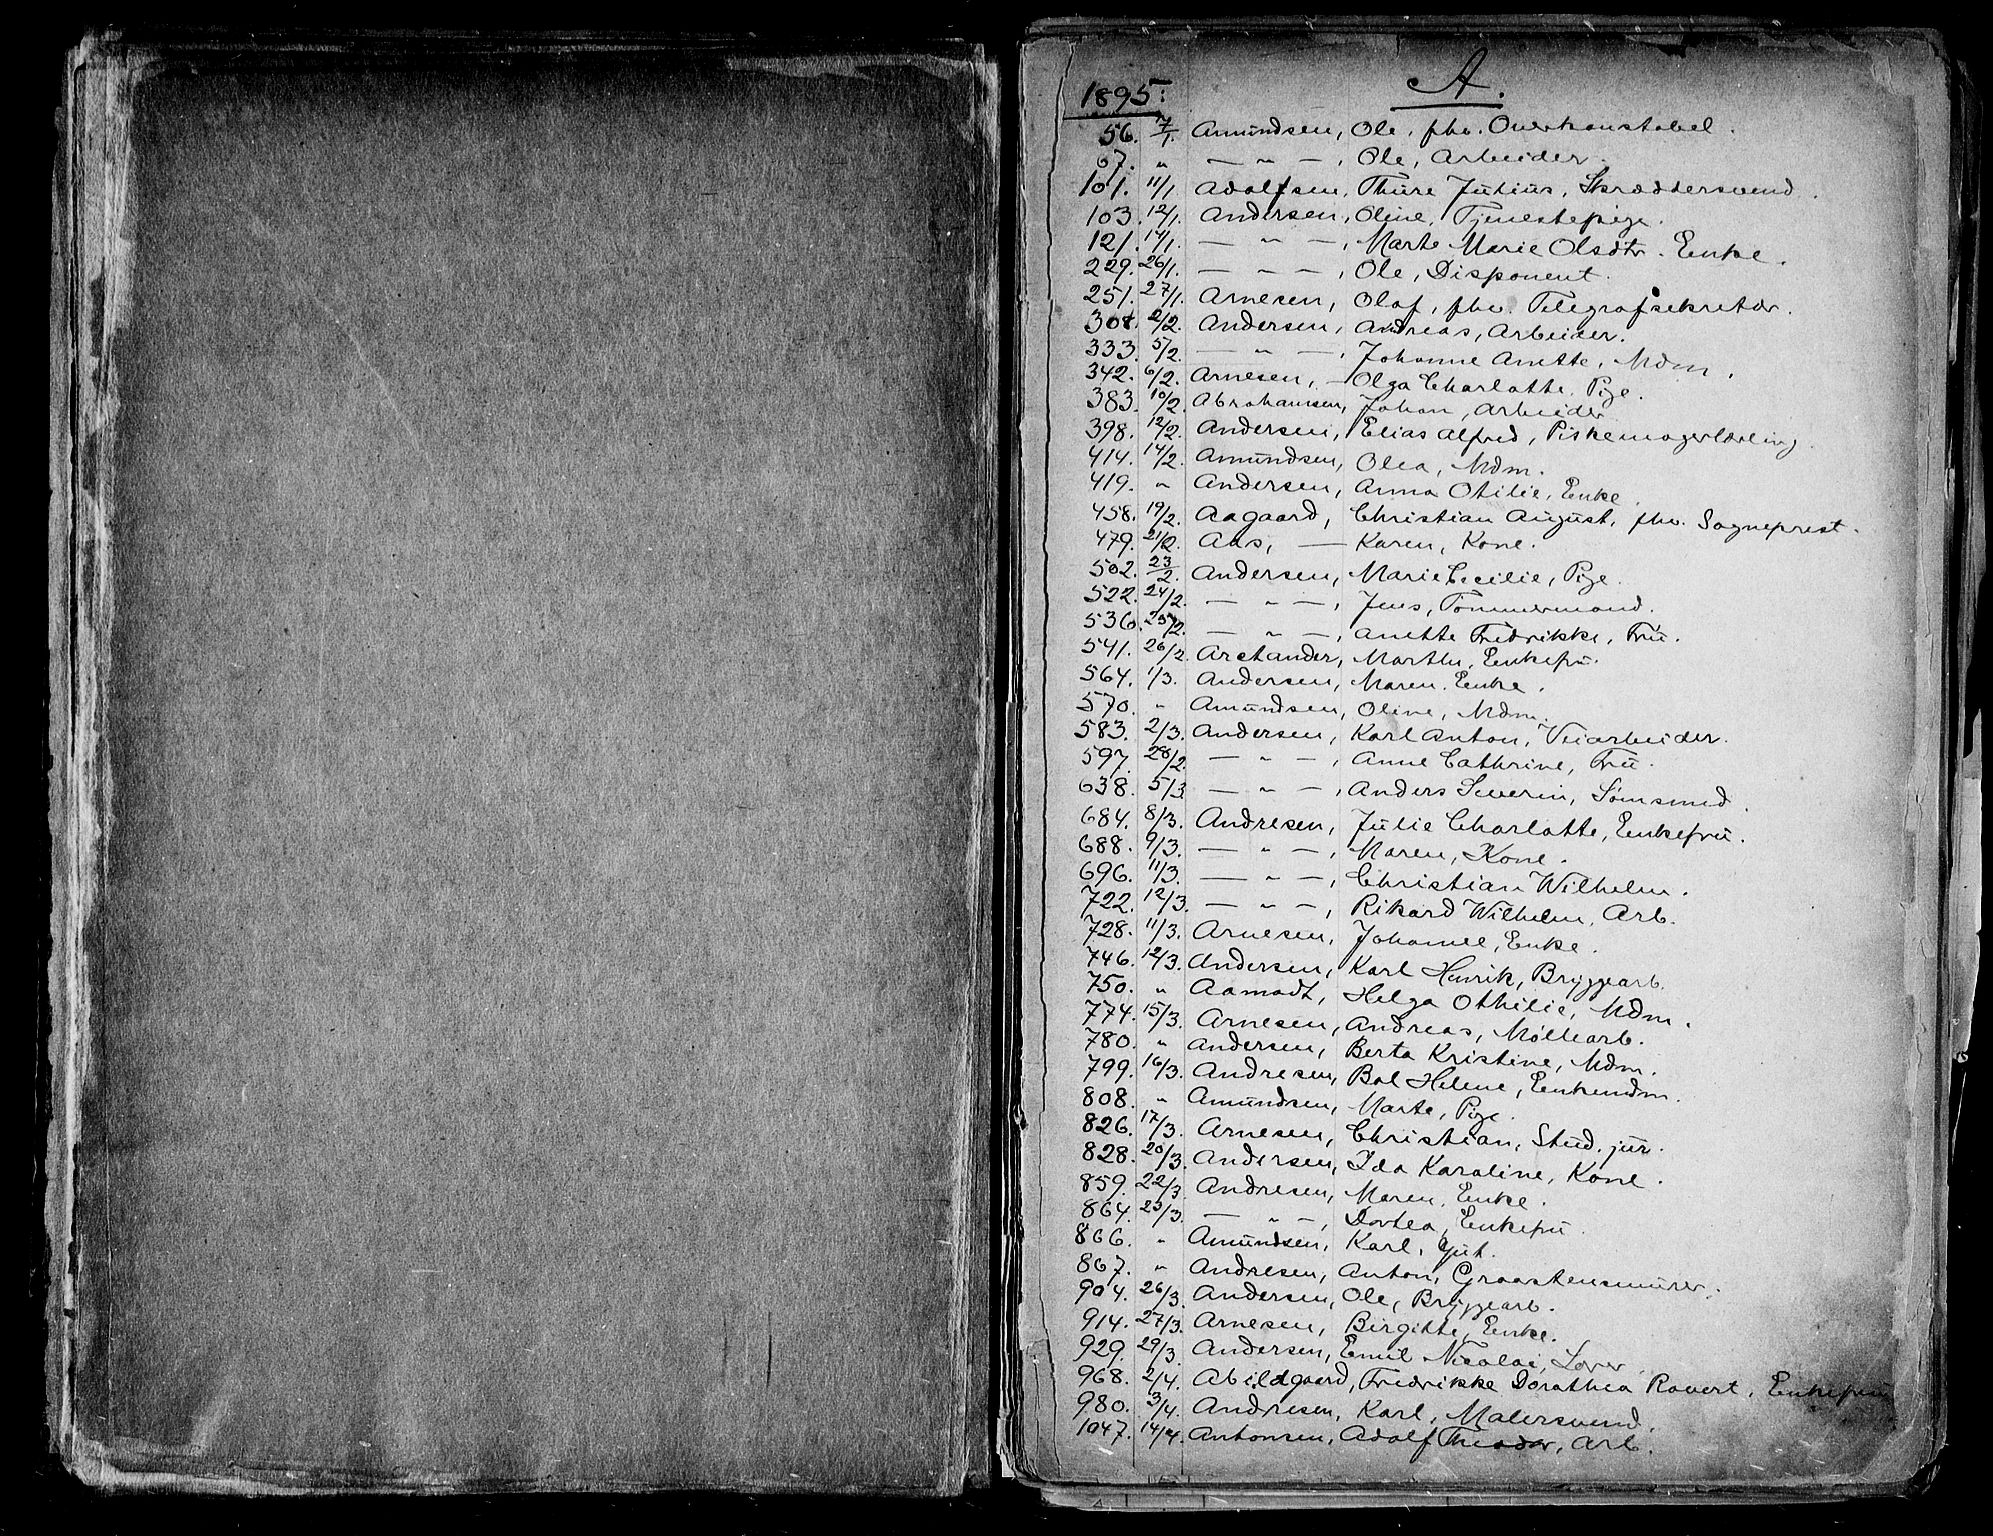 A.
1895:
56. 7/1. Amundsen, Ole, fhv. Overkonstabel.
67. " — " —, Ole, Arbeider.
101. 11/1 Adolfsen, Thure Julius, Skræddersvend.
103. 12/1. Andersen, Oline, Tjenestepige.
121. 14/1. — " —, Marte Marie Olsdtr. Enke.
229. 26/1. — " —, Ole, Disponent.
251. 27/1. Arnesen, Olaf, fhv. Telegrafsekretær.
308. 2/2. Andersen, Andreas, Arbeider.
333. 5/2. — " —, Johanne Anette, Mdm.
342. 6/2. Arnesen, — Olga Charlotte, Pige.
383. 10/2. Abrahamsen, Johan, Arbeider
398. 12/2. Andersen, Elias Alfred, Piskemagerlærling.
414. 14/2. Amundsen, Olea, Mdm.
419. " Andersen, Anna Otilie, Enke.
458. 19/2. Aagaard, Christian August, fhv. Sogneprest.
479. 21/2. Aas, — Karen, Kone.
502. 23/2. Andersen, Marie Cecilie, Pige.
522. 24/2. — " —, Jens, Tømmermand.
536. 25/2. — " —, Anette Fredrikke, Frü.
541. 26/2. Arctander, Marthe, Enkefrü.
564. 1/3. Andersen, Maren. Enke.
570. " Amundsen, Oline, Mdm.
583. 2/3. Andersen, Karl Anton, Veiarbeider.
597. 28/2. — " —, Anne Cathrine, Frü.
638. 5/3 — " —, Anders Severin, Sømsmed.
684. 8/3. Andresen, Julie Charlotte, Enkefrü.
688. 9/3. — " —, Maren, Kone.
696. 11/3. — " —, Christian Wilhelm.
722. 12/3. — " —, Rikard Wilhelm, Arb.
728. 11/3. Arnesen, Johanne, Enke.
746. 12/3. Andersen, Karl Henrik, Bryggearb.
750. " Aamodt, Helga Othilie, Mdm.
774. 15/3. Arnesen, Andreas, Møllearb.
780. " Andersen, Berta Kristine, Mdm.
799. 16/3. Andresen, Bol Helene, Enkemdm.
808. " Amundsen, Marte, Pige.
826. 17/3. Arnesen, Christian, Stud. jur.
828. 20/3. Andersen, Ida Karoline, Kone.
859. 22/3 Andresen, Maren, Enke.
864. 23/3. — " —, Dortea, Enkefrü
866. " Amundsen, Karl, Gut.
867. " Andresen, Anton, Graastensmurer.
904. 26/3. Andersen, Ole, Bryggearb.
914. 27/3. Arnesen, Birgitte, Enke.
929. 29/3. Andersen, Emil Nicolai,
968. 2/4. Abildgaard, Fredrikke Dorathea Rovert, Enkefrü
980. 3/4. Andresen, Karl, Malersvend.
1047. 14/4. Antonsen, Adolf Theodor, Arb.